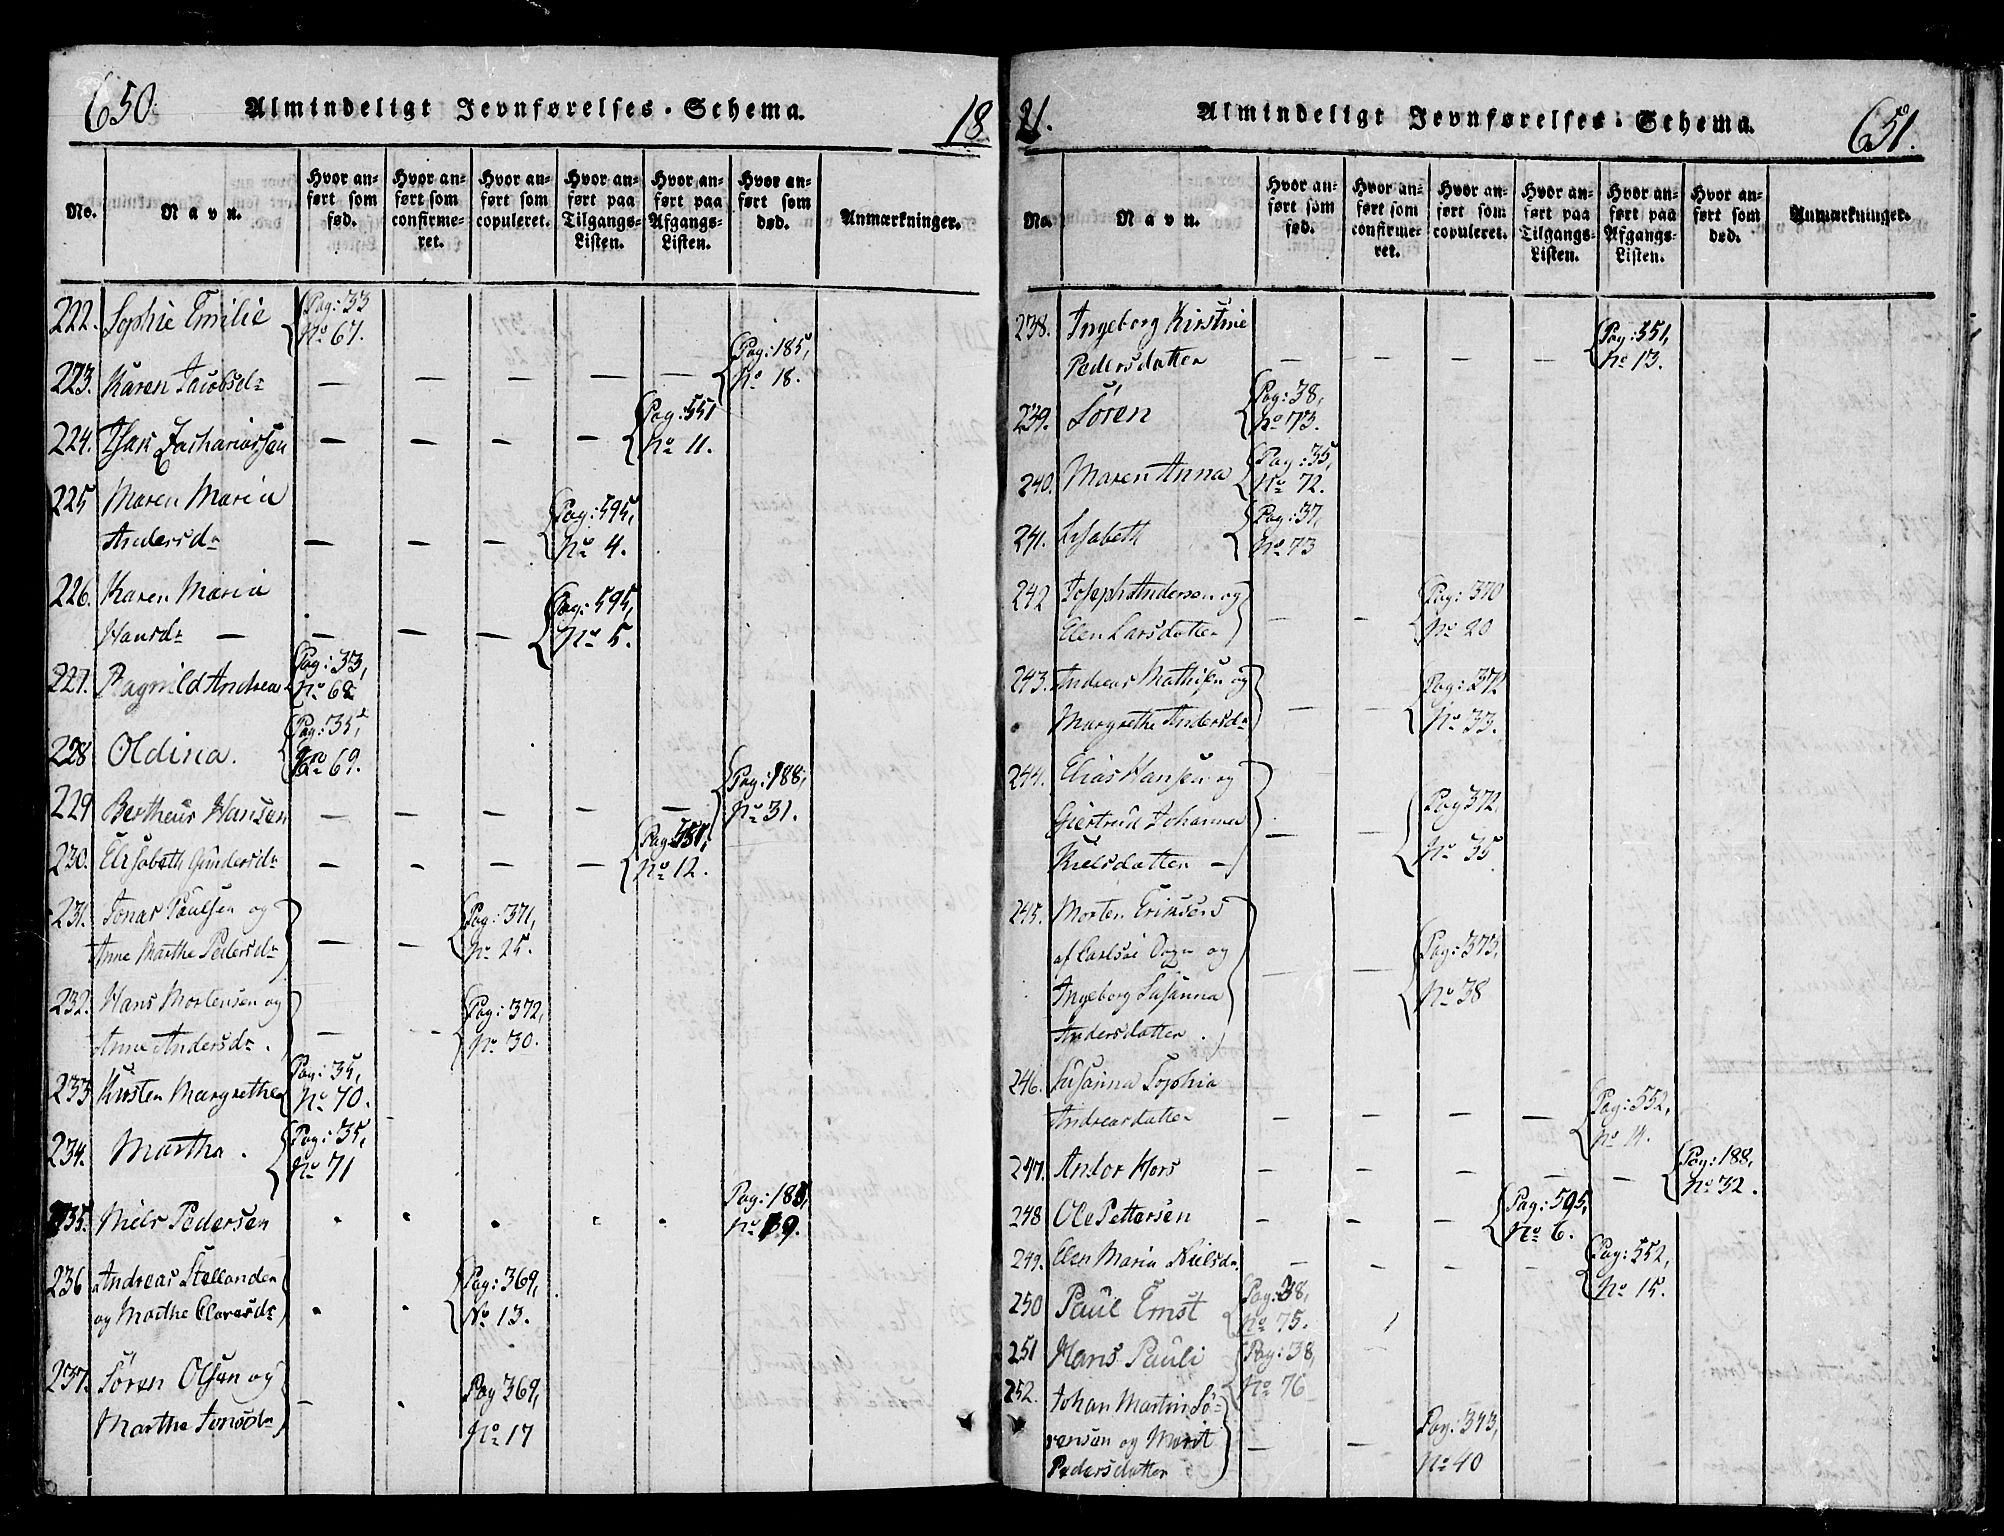 650.
Almindeligt Jevnførelses-Schema.
18
No.
Navn.
Hvor anført som fød.
Hvor anført som confirmeret.
Hvor anført som copuleret.
Hvor anført paa Tilgangs-Listen.
Hvor anført paa Afgangs-Listen.
Hvor anført som død.
Anmærkninger.
222. Sophie Emilie Pag: 33
No 67.
223. Karen Jacobsdr — — — — — Pag: 185,
No 18.
224. Isak Zachariassen — — — — Pag: 551
No 11.
225 Maren Maria
Andersdr — — — Pag: 595,
No 4.
226. Karen Maria
Hansdr — — — — Pag: 595,
No 5.
227. Ragnild Andrea Pag: 33,
No 68
228 Oldina. Pag: 35,
No 69.
229 Bertheus Hansen — — — — — Pag: 188,
No 31.
230. Elisabeth Gundersdr — — — — Pag: 551,
No 12.
231. Jonas Paulsen og
Anne Marthe Pedersdr — — Pag: 371,
No 25.
232. Hans Mortensen og
Anne Andersdr. — — Pag: 372,
No 30.
233 Kirsten Margrethe Pag: 35,
No 70.
234. Martha. Pag: 35,
No 71
235. Niels Pedersen Pag:
No
236 Andreas
og Marthe Pag: 369,
No 13.
237. Søren Olsen og
Marthe — Pag 369,
No 17
21.
Almindeligt Jevnførelses-Schema.
651.
No.
Navn.
Hvor anført som fød.
Hvor anført som confirmeret.
Hvor anført som copuleret.
Hvor anført paa Tilgangs-Listen.
Hvor anført paa Afgangs-Listen.
Hvor anført som død.
Anmærkninger.
238. Ingeborg Kirstine
Pedersdatter — — — — Pag: 551,
No 13.
239. Søren Pag: 38,
No 73.
240. Maren Anna Pag: 35,
No 72.
241. Lisabeth Pag: 37,
No 73
242 Joseph Andersen og
Elen Larsdatter — — Pag: 370
No 20
243. Andreas Mathisen og
Margrethe Andersdr — — Pag: 372
No 33.
244. Elias Hansen og
Giertrud Johanna
Nielsdatter — — — Pag 372
No 35
245. Morten Eriksen
af Sogn og
Ingeborg Susanna
Andersdatter. — — Pag: 373,
No 38
246. Susanna Sophia
Andreasdatter — — — — Pag: 552,
No 14.
247. Antor Mors — — — — — Pag: 188,
No 32.
248 Ole Pettersen — — — Pag: 595,
No 6.
249. Elen Maria Nielsdr — — — — Pag: 552,
No 15.
250 Paul Ernst Pag: 38,
No 75.
251 Hans Pauli Pag: 38,
No 76
252. Johan Martin Sø-
rensen og Marit
Pedersdatter — — Pag: 373,
No 40